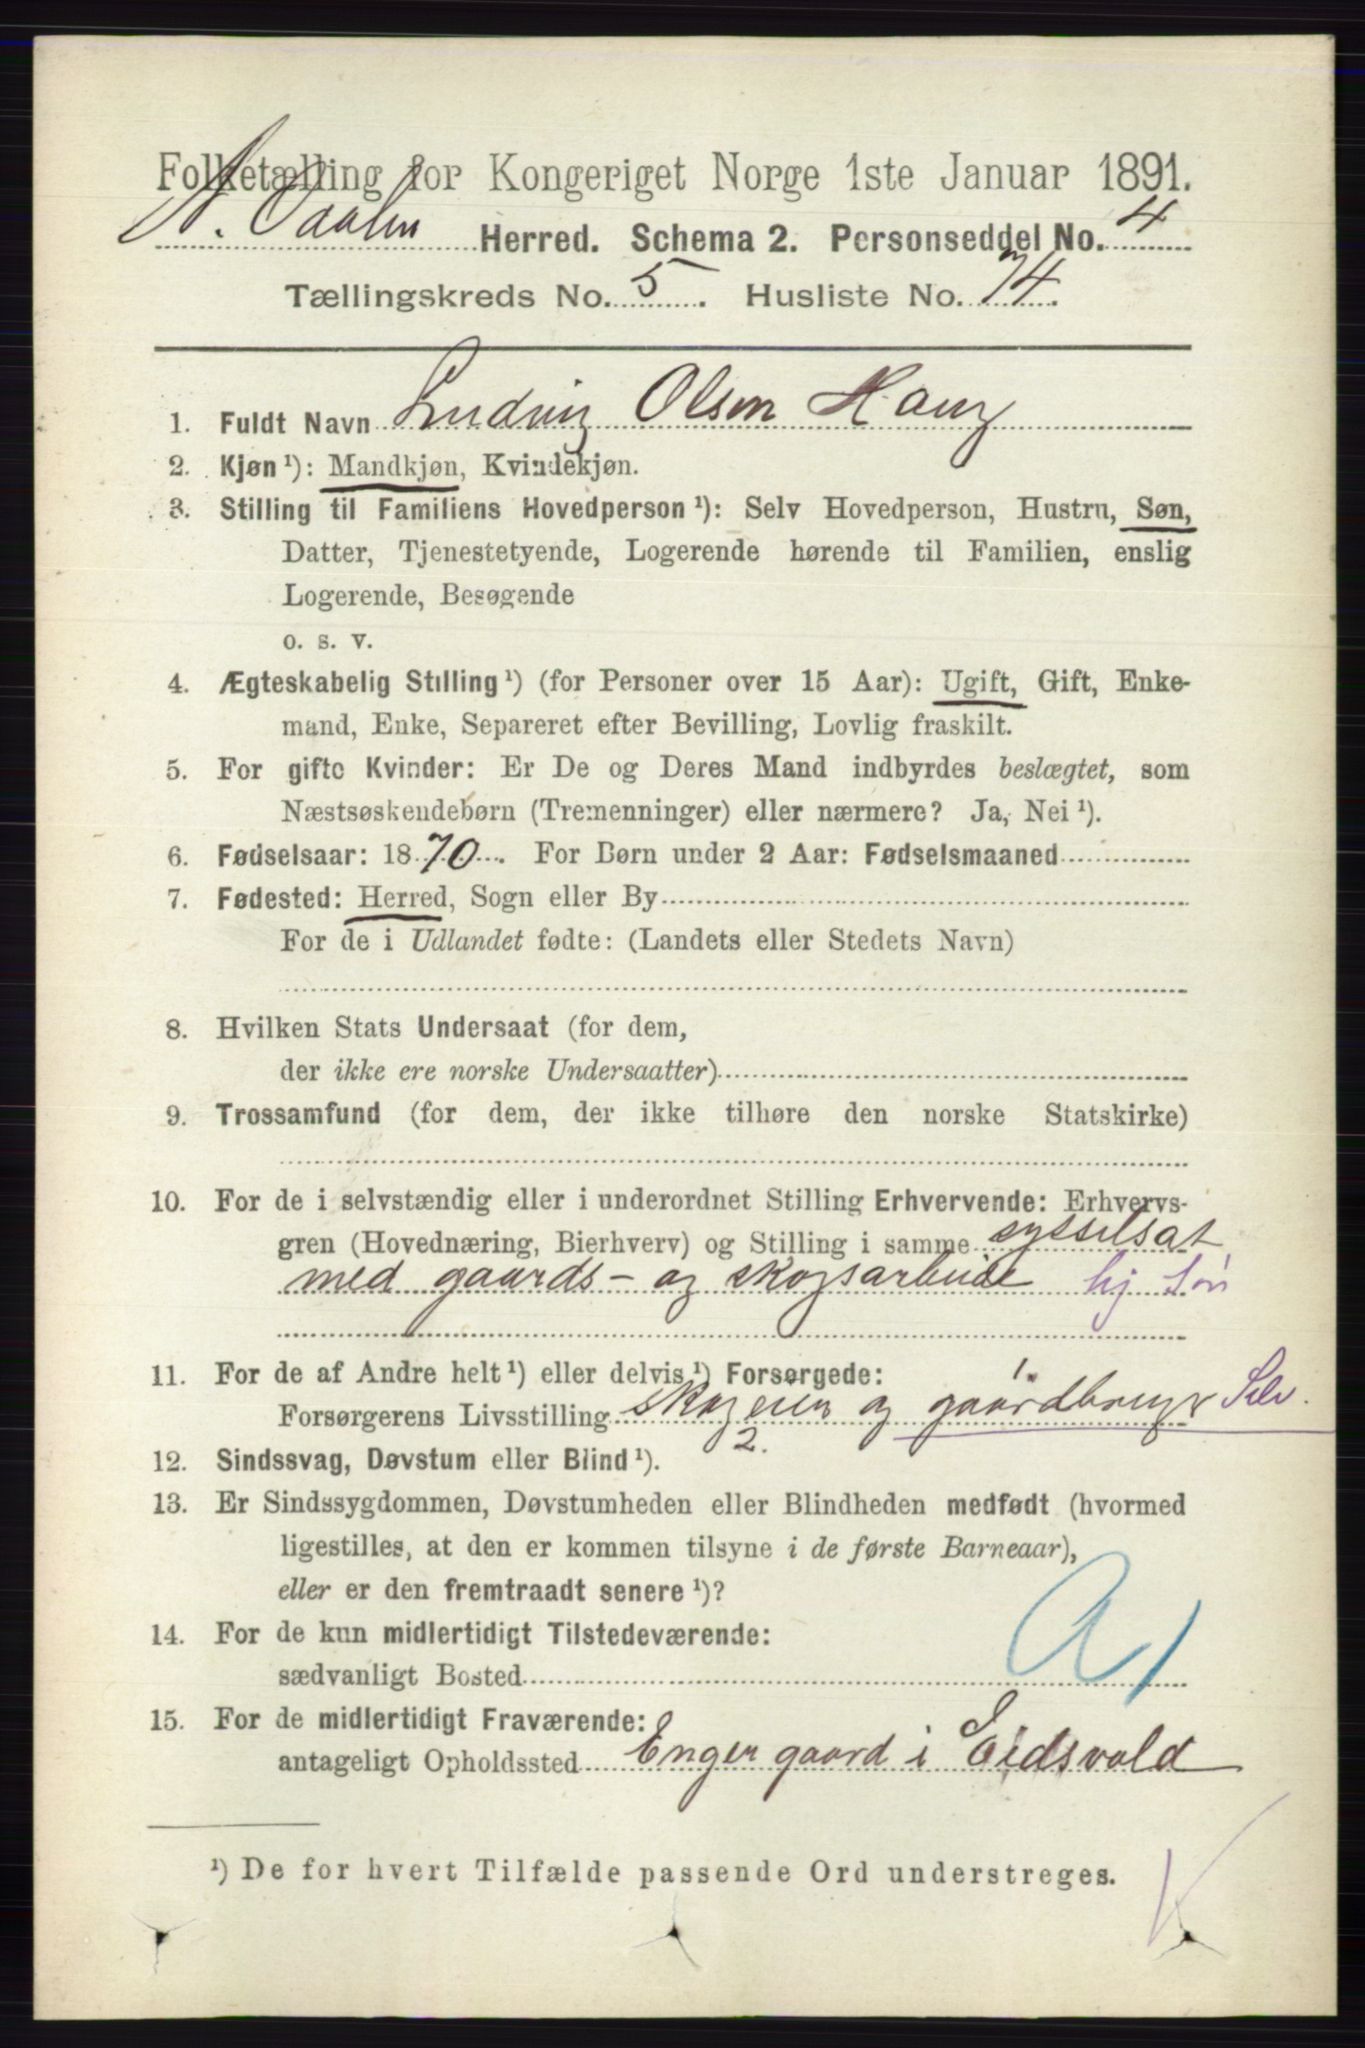 Folketælling for Kongeriget Norge 1ste Januar 1891.
N. Odalen Herred. Schema 2. Personseddel No. 4
Tællingskreds No. 5. Husliste No. 74.
1. Fuldt Navn Ludvig Olsen Haug
2. Kjøn ¹): Mandkjøn, Kvindekjøn.
3. Stilling til Familiens Hovedperson ¹): Selv Hovedperson, Hustru, Søn,
Datter, Tjenestetyende, Logerende hørende til Familien, enslig
Logerende, Besøgende
o. s. v.
4. Ægteskabelig Stilling ¹) (for Personer over 15 Aar): Ugift, Gift, Enke-
mand, Enke, Separeret efter Bevilling, Lovlig fraskilt.
5. For gifte Kvinder: Er De og Deres Mand indbyrdes beslægtet, som
Næstsøskendebørn (Tremenninger) eller nærmere? Ja, Nei ¹).
6. Fødselsaar: 1870. For Børn under 2 Aar: Fødselsmaaned
7. Fødested: Herred, Sogn eller By
For de i Udlandet fødte: (Landets eller Stedets Navn)
8. Hvilken Stats Undersaat (for dem,
der ikke ere norske Undersaatter)
9. Trossamfund (for dem, der ikke tilhøre den norske Statskirke)
10. For de i selvstændig eller i underordnet Stilling Erhvervende: Erhvervs-
gren (Hovednæring, Bierhverv) og Stilling i samme sysselsat
med gaards- og skogsarbeide hj. Søn
11. For de af Andre helt ¹) eller delvis ¹) Forsørgede:
1.
Forsørgerens Livsstilling skogeier og gaardbruger Selv.
2.
12. Sindssvag, Døvstum eller Blind ¹).
13. Er Sindssygdommen, Døvstumheden eller Blindheden medfødt (hvormed
ligestilles, at den er kommen tilsyne i de første Barneaar),
eller er den fremtraadt senere ¹)?
14. For de kun midlertidigt Tilstedeværende:
sædvanligt Bosted
15. For de midlertidigt Fraværende:
antageligt Opholdssted Enger gaard i Eidsvold
¹) De for hvert Tilfælde passende Ord understreges.
K